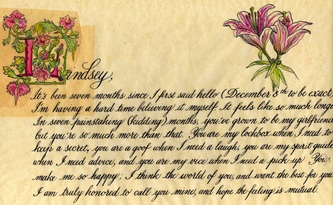 Lindsey,
It's been seven months since I first said hello (December 8th to be exact
I'm having a hard time believing it myself. It feels like so much long
In seven painstaking (kidding) months, you've grown to be my girlfriend
but you're so much more than that. You are my lockbox when I need to
keep a secret, you are a goof when I need a laugh, you are my spirit guide
when I need advice, and you are my vice when I need a pick up. You
make me so happy; I think the world of you, and want the best for you
I am truly honored to call you mine, and hope the feeling is mutual.